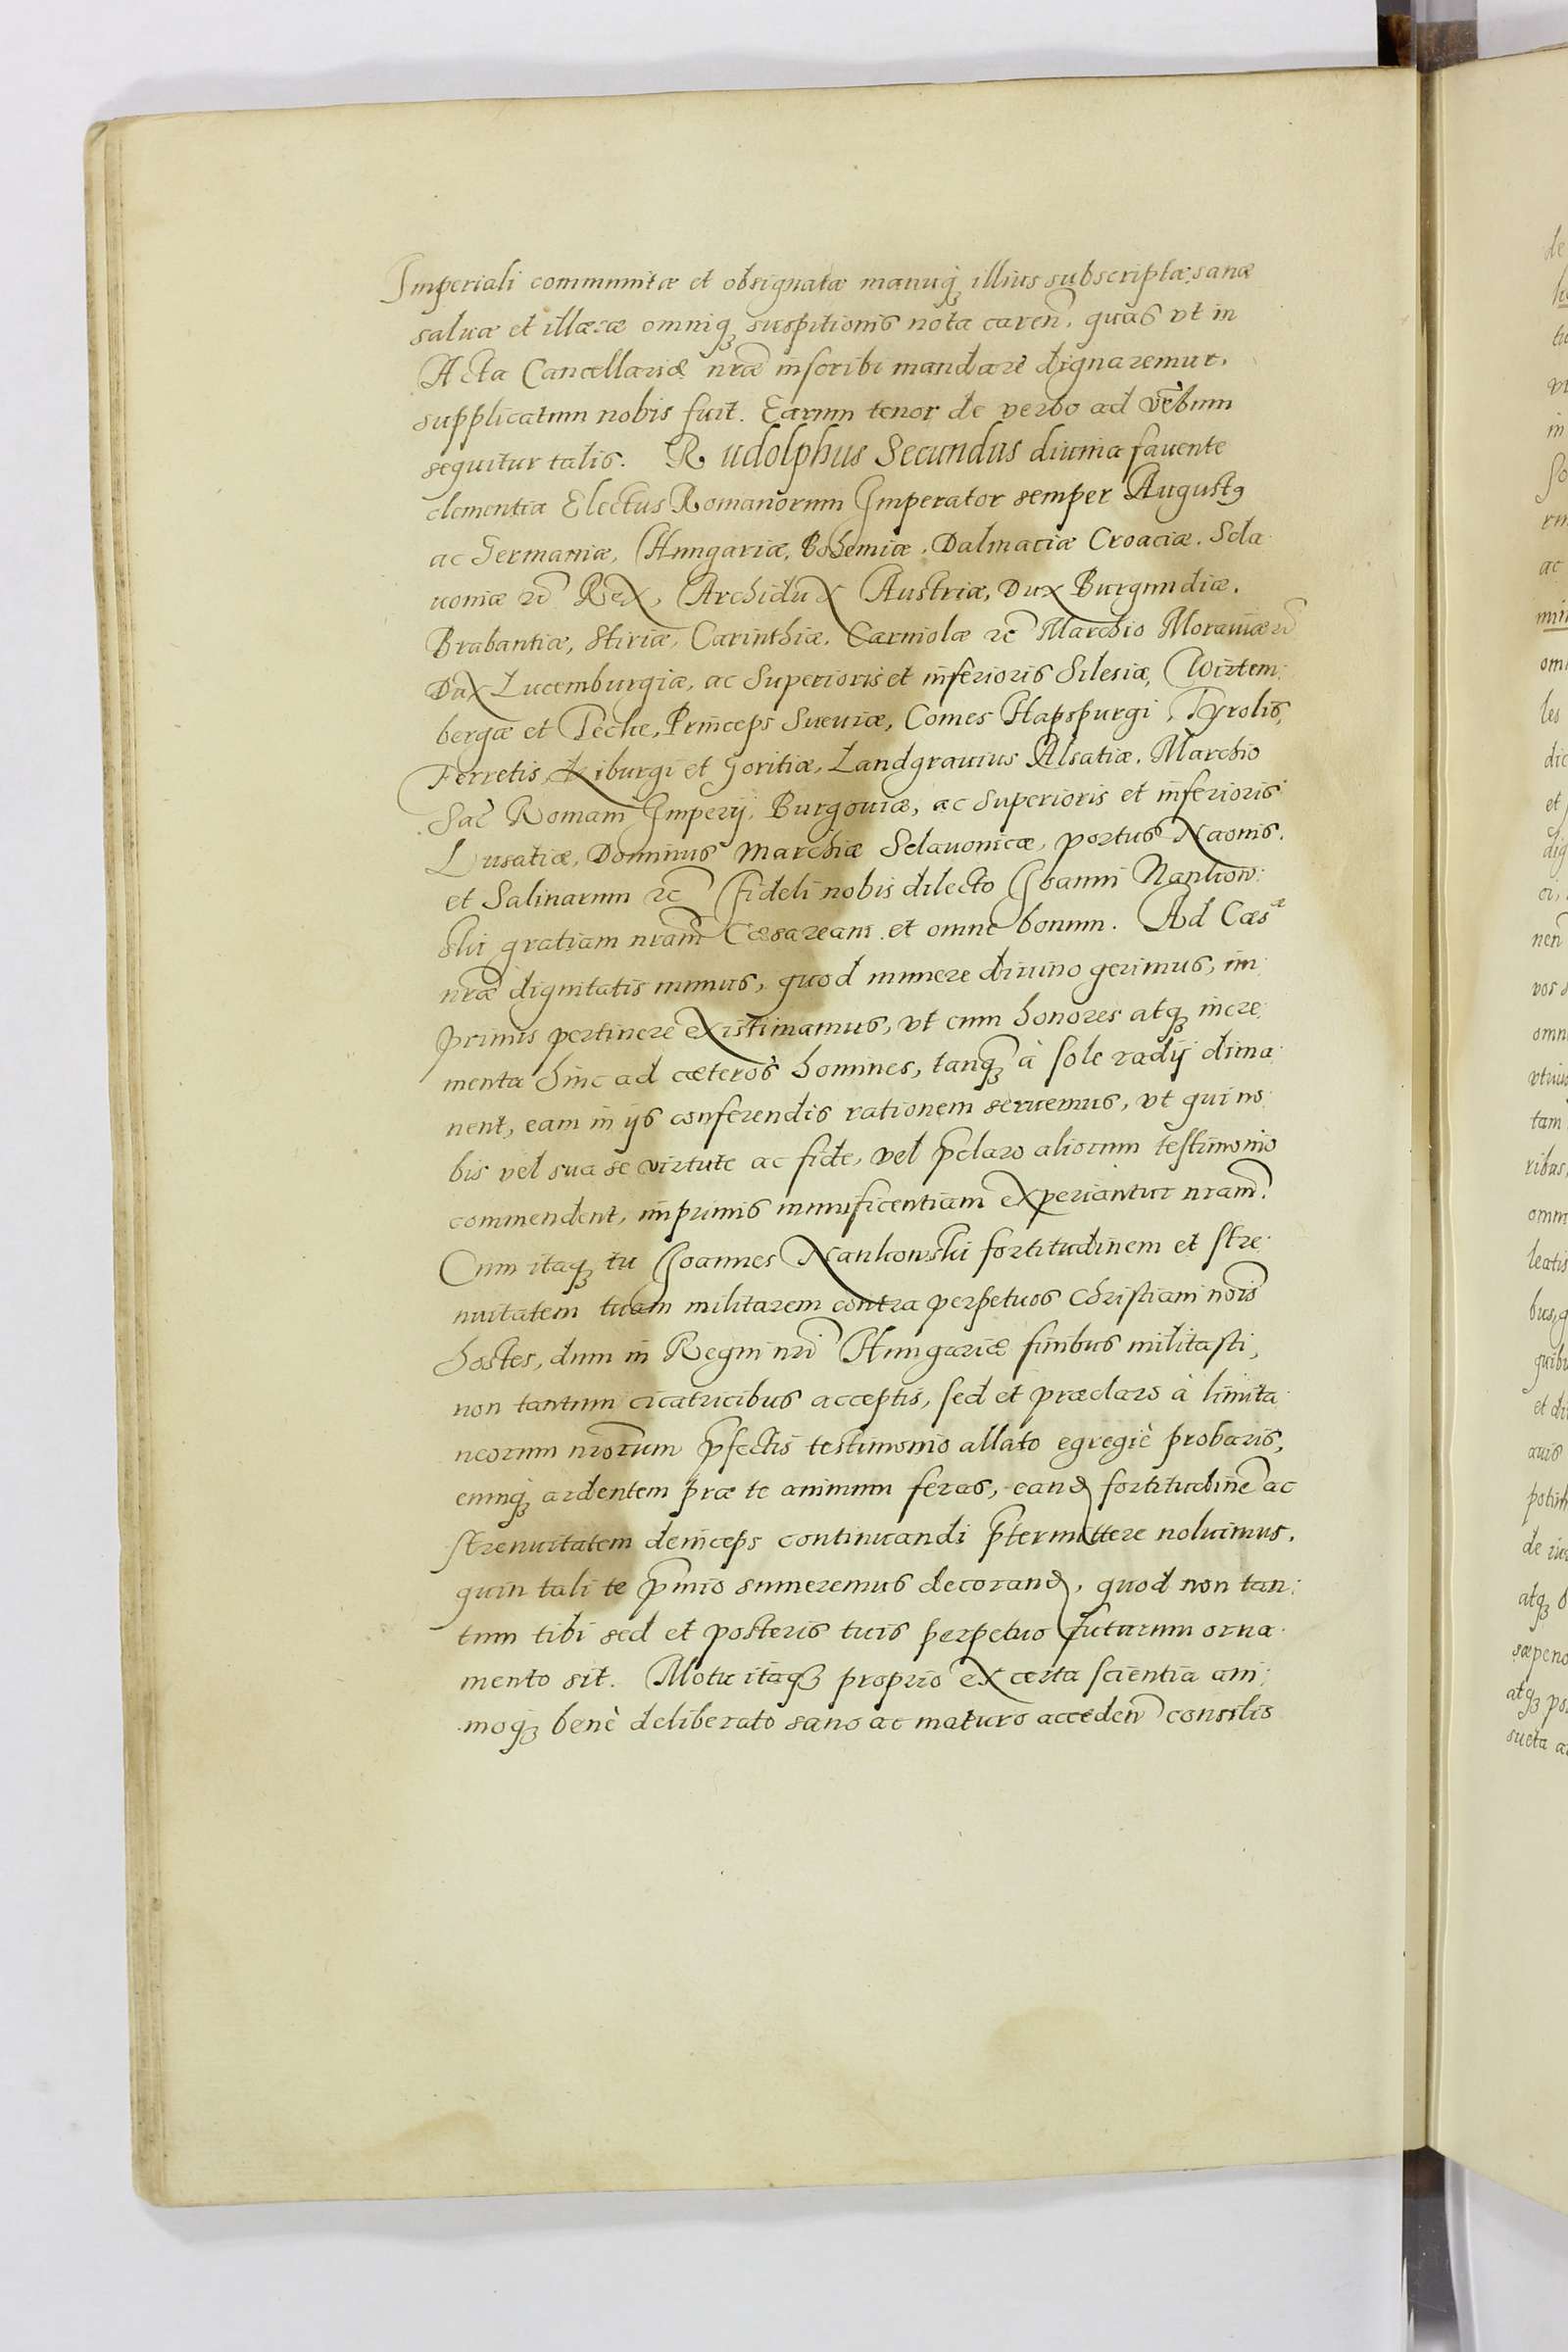 Imperiali communitæ et obsignatæ manuq₃ illius subscriptæ, sanæ
saluæ et illæsæ omniq₃ suspitionis nota caren̄, quas vt in
Acta Cancellariæ nr̄æ inscribi mandare dignaremur,
supplicatum nobis fuit. Earum tenor de verbo ad vērbum
sequitur talis. Rudolphus Secundus diuina fauente
clementia Electus Romanorum Imperator semper August9
ac Germaniæ, Hungariæ, Bohemiæ, Dalmatiæ Croaciæ, Scla
uoniæ ꝛc̄ Rex, Archidux Austriæ, Dux Burgundiæ,
Brabantiæ, Stiriæ, Carinthiæ, Carniolæ ꝛc̄ Marchio Morauiæ ꝛc̄
Dux Lucemburgiæ, ac Superioris et inferioris Silesiæ, Wirtem:
bergæ et Teckæ, Princeps Sueuiæ, Comes Hapspurgi, Tyrolis,
Ferretis, Kiburgi et Goritiæ, Landgrauius Alsatiæ, Marchio
Sac̄ Romani Imperij, Burgouiæ, ac Superioris et inferioris
Lusatiæ, Dominus Marchiæ Sclauonicæ, portus Naonis,
et Salinarum ꝛc̄ fideli nobis dilecto Joanni Nankow:
ski gratiam nr̄am Cæsaream et omne bonum. Ad Cæs̄
nr̄æ dignitatis munus, quod munere diuino gerimus, im
primis pertinere existimamus, vt cum honores atq₃ incre:
menta hinc ad cæteros homines, tanq₃ à sole radij dima
nent, eam in ijs conferendis rationem seruemus, vt qui no:
bis vel sua se virtute ac fide, vel p̄claro aliorum testimonio
commendent, imprimis munificentiam experiantur nr̄am.
Cum itaq₃ tu Joannes Nankowski fortitudinem et stre:
nuitatem tuam militarem contra perpetuos Christiani nōis
hostes, dum in Regni nr̄i Hungariæ finibus militasti,
non tantum cicatricibus acceptis, sed et præclaro à limita
neorum nr̄orum p̄fectis testimonio allato egregiè probaris,
eumq₃ ardentem præ te animum feras, eand fortitudinē ac
strenuitatem deinceps continuandi p̄termittere noluimus,
quin tali te p̄mio sumeremus decorand, quod non tan:
tum tibi sed et posteris tuis perpetuo futurum orna
mento sit. Motu itaq₃ proprio ex certa scientia ani:
moq₃ benè deliberato sano ac maturo acceden̄ consilio